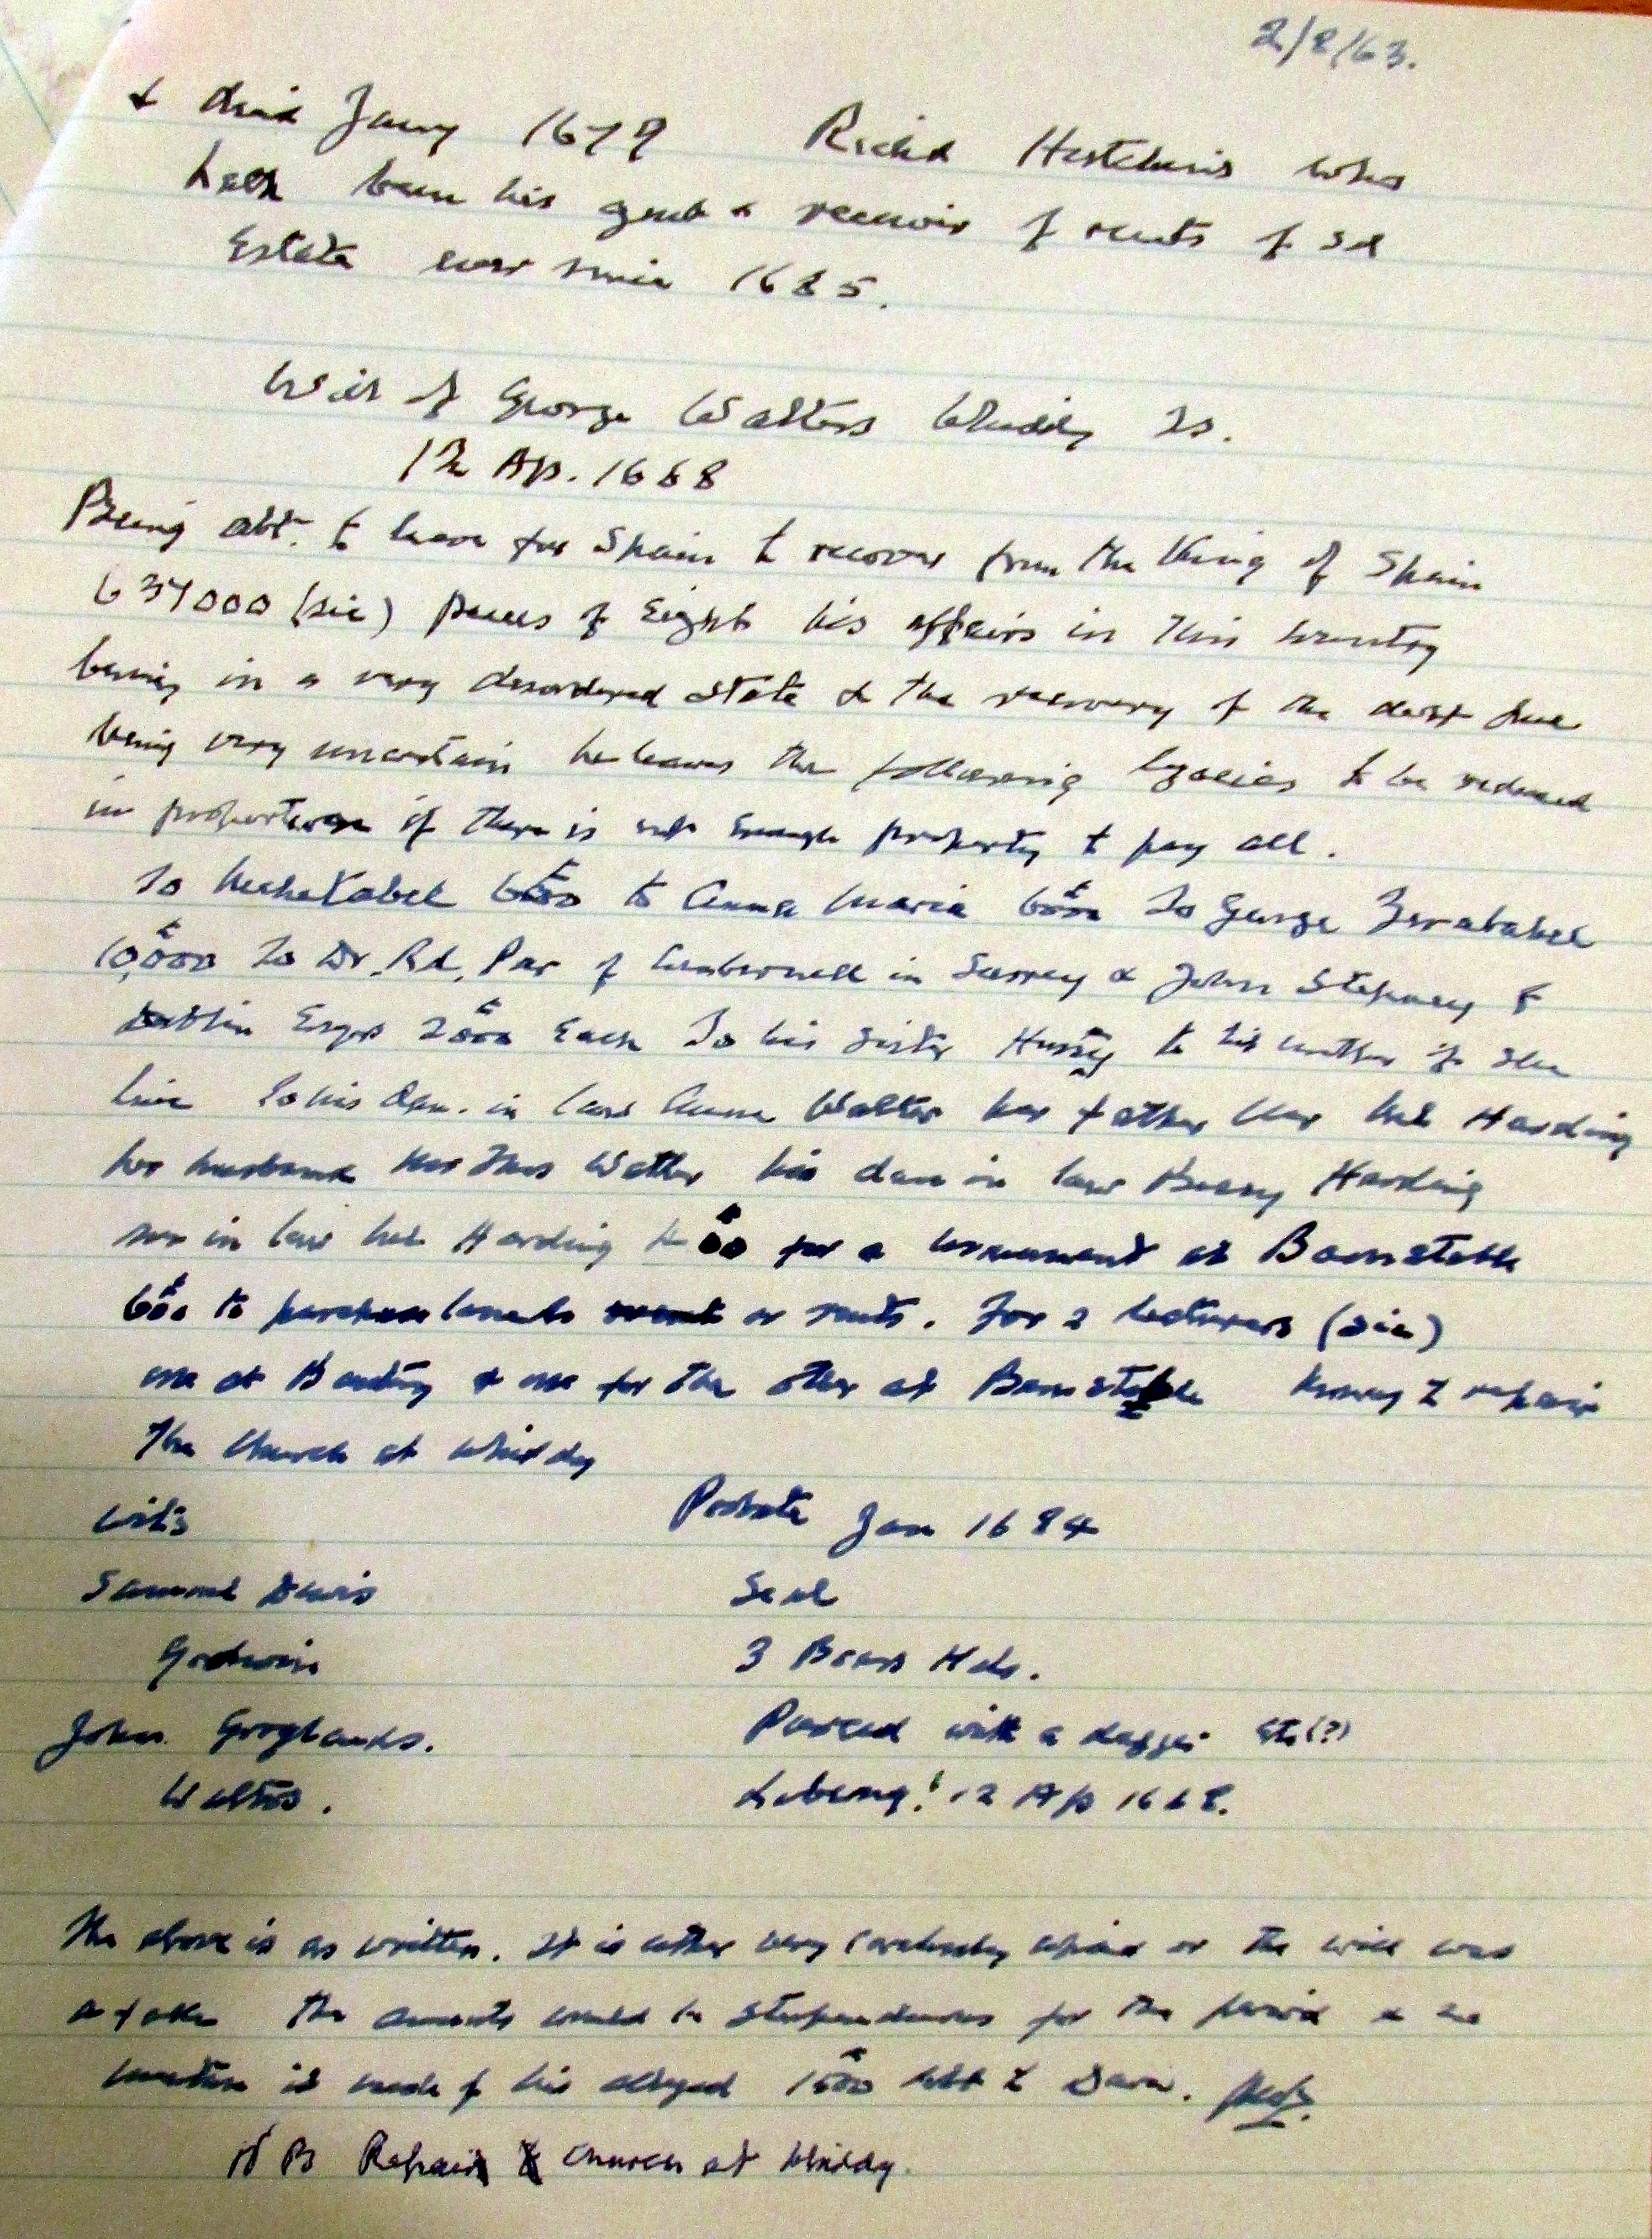 2/8/63.
& died Jany 1679 Richd Hutchins who
hath been his agent & receiver of rents of sd
Estate ever since 1685.
Will of George Walters Whiddy Is.
12 Ap. 1668
Being abt. to leave for Spain to recover from the King of Spain
634000 (sic) pieces of Eight his affairs in this country
being in a very disordered state & the recovery of the debt due
being very uncertain he leaves the following legacies to be reduced
in proportion if there is not enough property to pay all.
To Mehetabel £6000 to Anna Maria £6000 To George Zerababel
£10,000 To Dr. Rd. Par of Camberwell in Surrey & John Stepney of
Dublin Esqrs £2000 Each To his sister Hussey to his mother if she
live To his dau. in law Anna Walter her father Harding
her husband Mr Thos Walter his dau in law Harding
son in law Harding £ for a monument at Barnstable
£600 to purchase lands or rents. For 2 lecturers (sic)
one at Bantry & one for the other at Barnstable Money to repair
The Church at Whiddy
Wit's Probate Jan 1684
Samuel Davis Seal
Godwin 3 Bears Hds.
John Groglands. Pierced with a dagger
Walters. 12 Ap 1668.
The above is as written. It is either very carelessly copied or the will was
a fake The amounts would be stupendous for the period & no
mention is made of his alleged £1500 debt to Davis.
N B Repair Church at Whiddy.